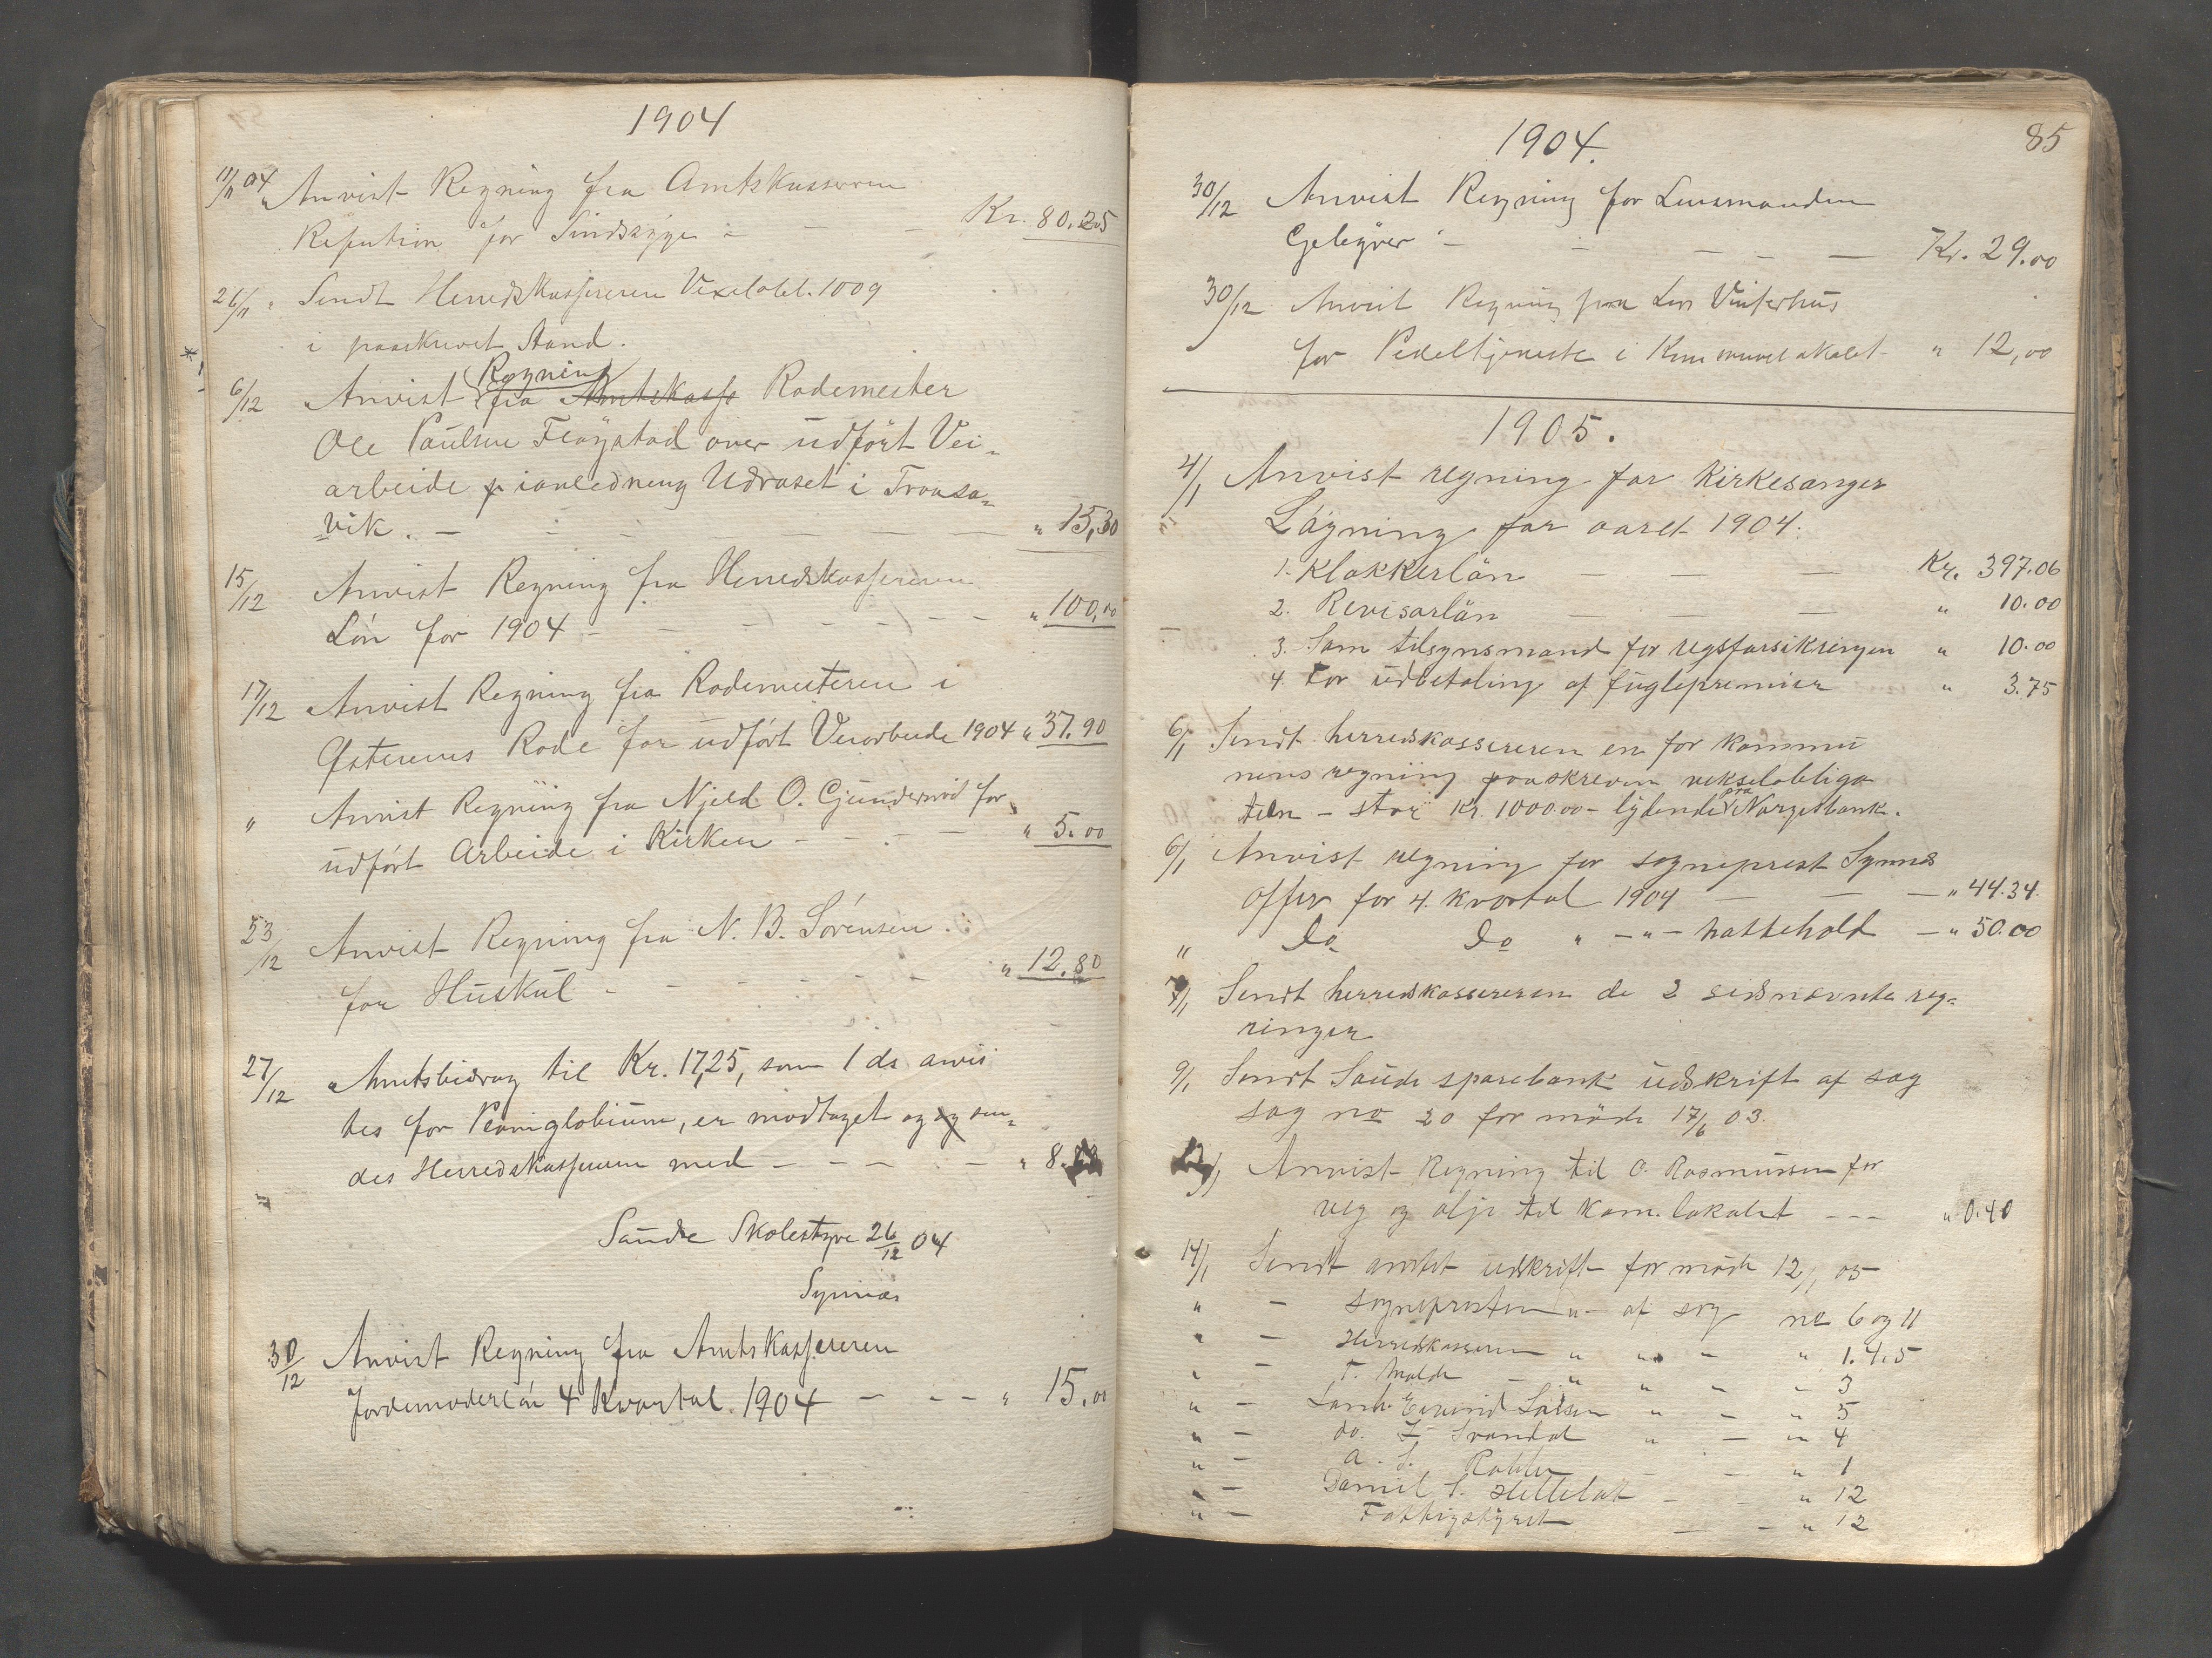 1904
11/11 04 Anvist Regning fra Amtskasseren
Refusion for Sindssyge - - - Kr. 80.25
26/11 " Sendt Herredskassereren Vexelobl. 1009
i paaskrevet Stand.
Regning
6/12 Anvist fra Amtskasse Rodemester
Ole Paulsen Fløgstad over udført Vei-
arbeide i anledning Udraset i
vik. - - - - " 15,30
15/12 Anvist Regning fra Herredskassereren
Løn for 1904 - - - - - " 100,00
17/12 Anvist Regning fra Rodemesteren i
Østerens Rode for udført Veiarbeide 1904 " 37.90
" Anvist Regning fra Njeld O. for
udført Arbeide i Kirken - - - - " 5.00
23/12 Anvist Regning fra N. B. Sørensen.
for Huskul - - - - - " 12.80
27/12 Amtsbidrag til Kr. 17,25, som 1 ds anvi
tes for Peeniglobium, er modtaget og og sen-
des Herredskassereren med - - - - " 8.
Saude Skolestyre 26/12 04
Synnes
30/12 Anvist Regning fra Amtskassereren
Jordemoderløn 4 Kvartal. 1904 - - - " 15.00
85
1904.
30/12 Anvist Regning for Lensmanden
- - - - - Kr. 29.00
30/12 Anvist Regning fra Lars Vinterhus
for Pedeltjeneste i Kommunelokalet - " 12,00
1905.
4/1 Anvist regning for kirkesanger
Lägning for aaret 1904.
1. Klokkerlön - - - Kr. 397.06
2. Revisorlön - - " 10.00
3. Som tilsynsmand for sygeforsikringen " 10.00
4. For udbetaling af fuglepremier " 3.75
6/1 Sendt herredskassereren en for kommu
nens regning paaskreven vekselobliga
pra
tion - stor Kr. 1000.00 - lydende Norgesbank.
6/1 Anvist regning for sogneprest Synnes
offer for 4. kvartal 1904 - - - " 44.34.
" Do Do " - " - hattehold - " 50.00
7/1 Sendt herredskassereren de 2 sidsnævnte reg-
ninger
9/1 Sendt Saude sparebank udskrift af sag
sag no 20 for møde 17/6 03.
Anvist Regning til O. Rasmussen for
veg og olje til kom. lokalet - - - " 0.40
14/1 Sendt amtet udskrift for møde 12/1 05
" - sognepresten " - af sag no 6 og 11
" - Herredskasseren " " - " 1.4.5
" - T. Molde - " " - - 3
" - Lensm. Larsen " - " 5
" - do. Svandal " - " 4
" - a. S. - - " 1
" - Daniel S. - - " 12
" - Fattigstyret - - " 12